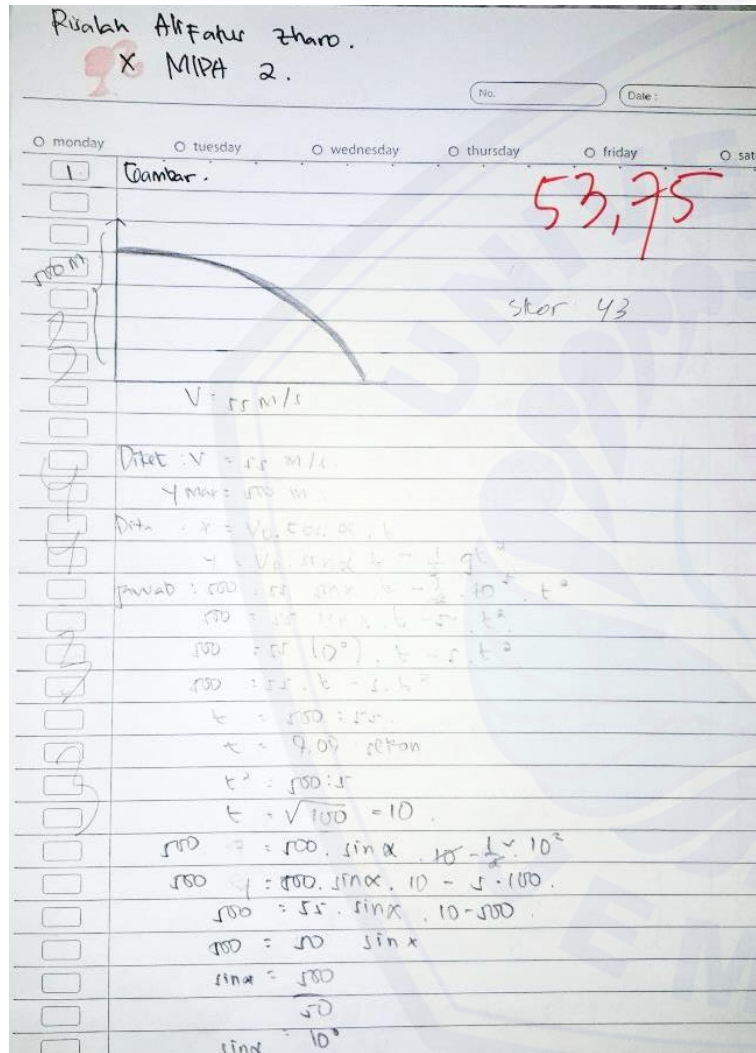 Risalah Alifatus Zharo.
X MIPA 2.
No.
Date :
monday tuesday wednesday thursday friday sat
1. Gambar.
53,75
500 M
skor 43
V = 55 m/s
Diket : V = 55 m/s
Y Max = 500 m
x = Vo. cos. α . t
Y = Vo sin α t - 1/2 gt²
Jawab : 500 = 55 sin α t - 1/2 . 10 . t²
500 = 55 sin α . t - 5 . t²
500 = 55 (0°) . t - 5 . t²
500 = 55 . t - 5 . t²
t = 500 : 55
t = 9,09 sekon
t² = 500 : 5
t = √100 = 10 .
500 = 500 . sin α . 10 - 1/2 . 10²
500 = 500 . sin α . 10 - 5 . 100 .
500 = 55 . sin α . 10 - 500 .
500 = 50 sin α
sin α = 500
50
sin α = 10°